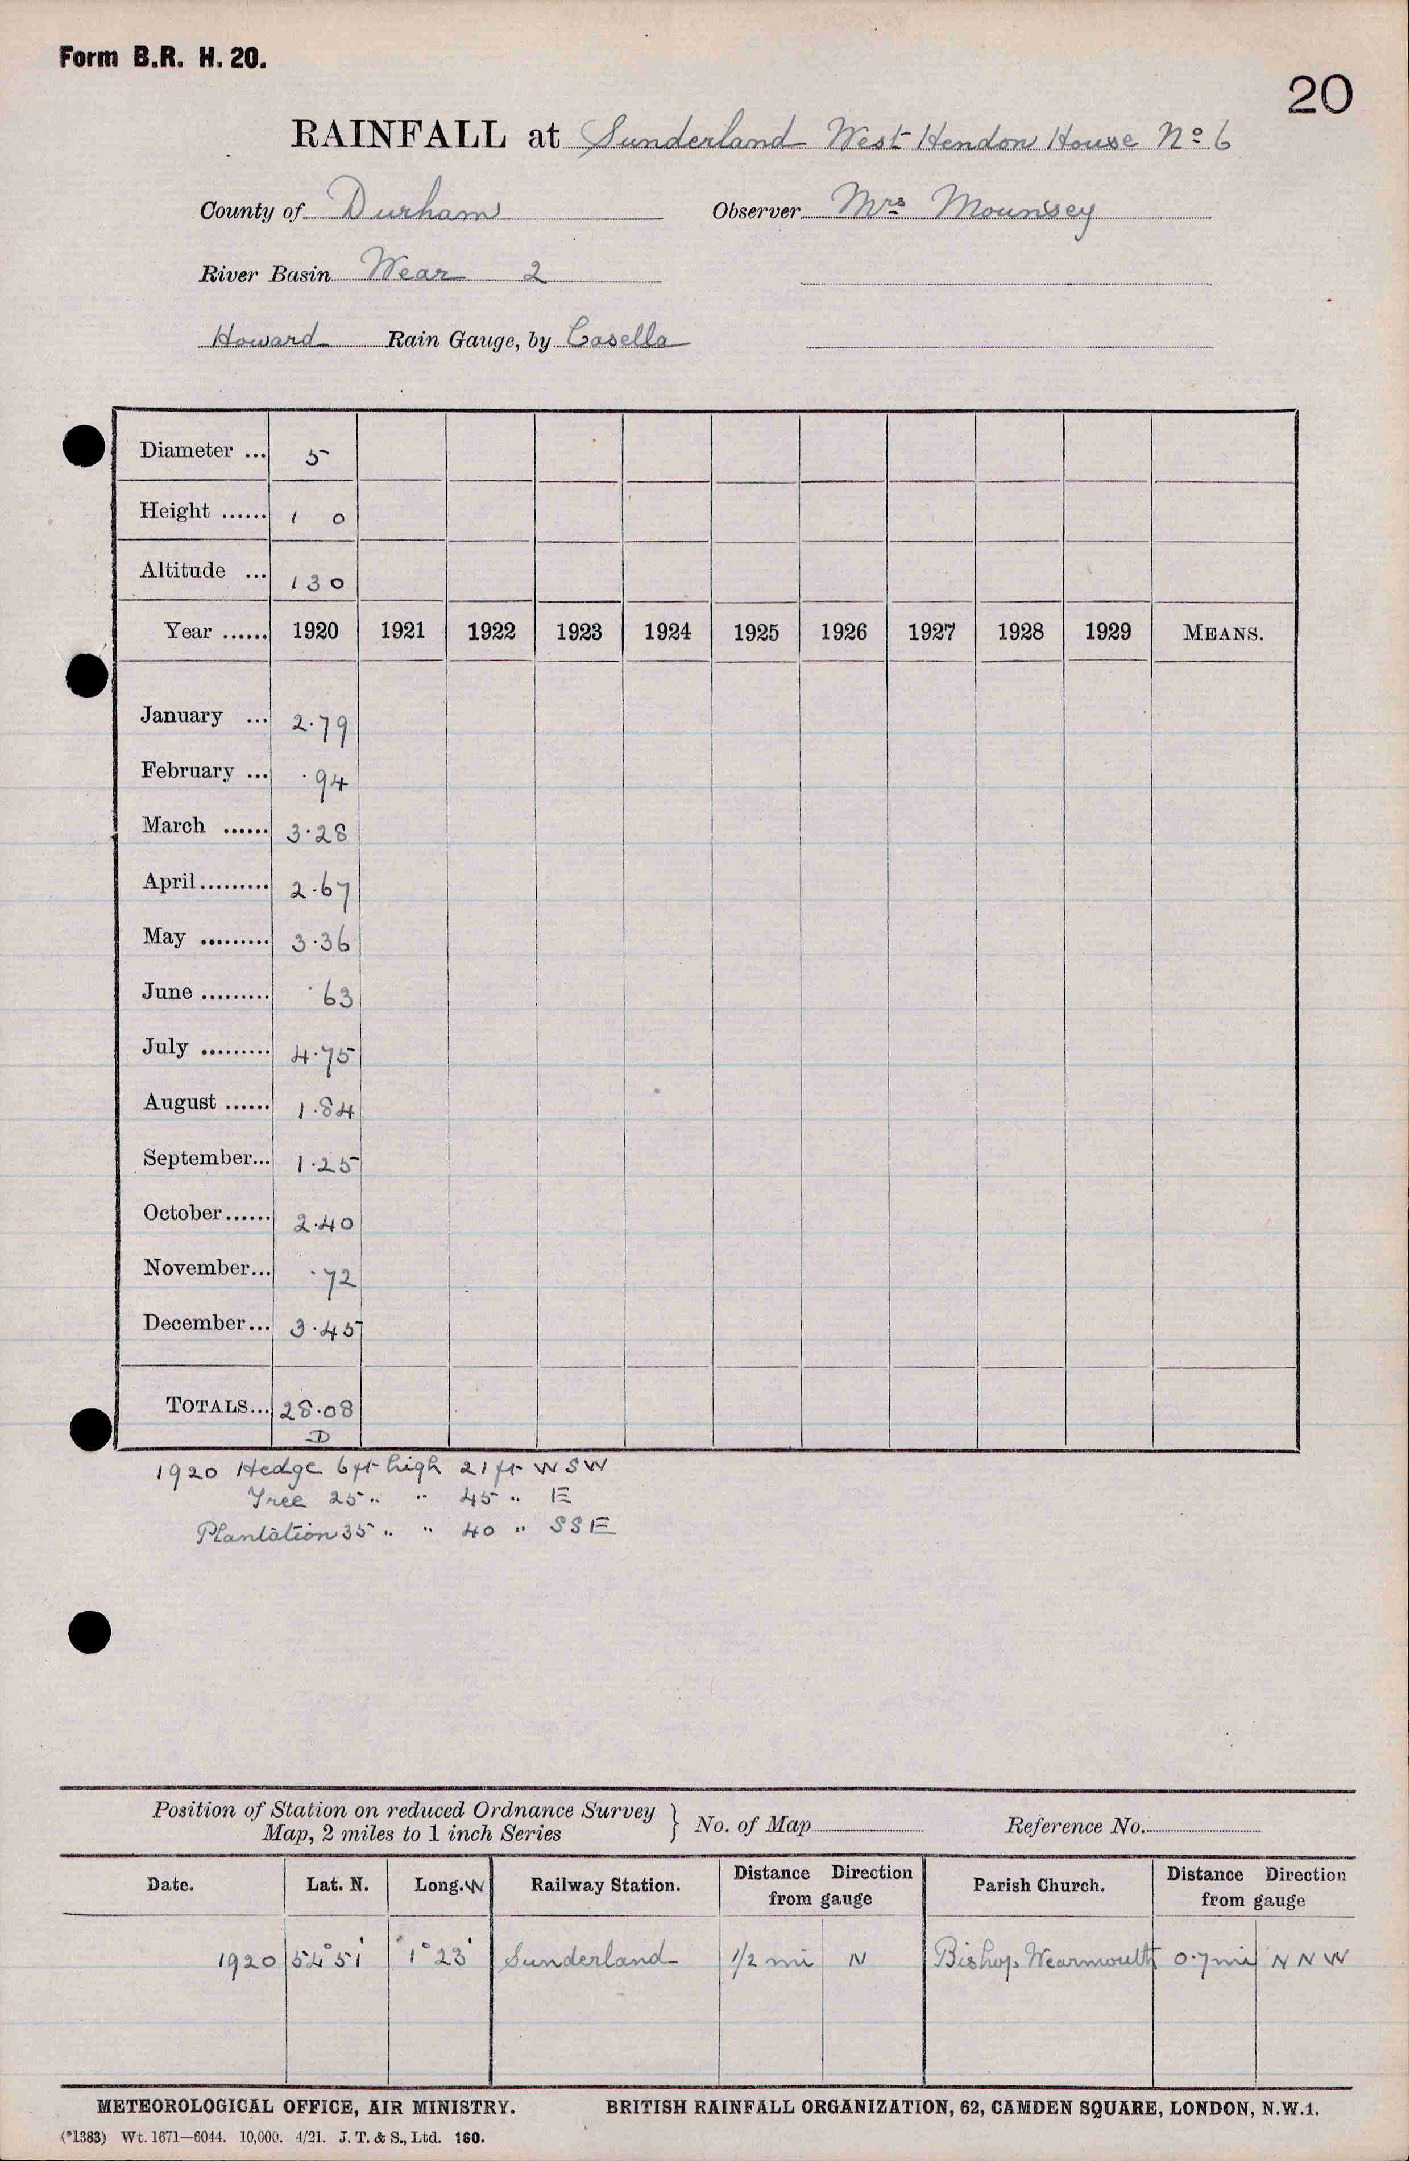 Form B.R. H. 20.
20
RAINFALL at Sunderland West Hendon House No. 6
County of Durham Observer Mrs Mounsey
River Basin Wear 2
Howard Rain Gauge, by Casella
Diameter ... 5
Height ...... 1 0
Altitude ... 130
Year ...... 1920 1921 1922 1923 1924 1925 1926 1927 1928 1929 MEANS.
January ... 2.79
February ... .94
March ...... 3.28
April ......... 2.67
May ......... 3.36
June ......... .63
July ......... 4.75
August ...... 1.84
September... 1.25
October...... 2.40
November... .72
December... 3.45
TOTALS... 28.08
D
1920 Hedge 6 ft high 21 ft WSW
Tree 25 " " 45 " E
Plantation 35 " " 40 " SSE
Position of Station on reduced Ordnance Survey
Map, 2 miles to 1 inch Series } No. of Map Reference No.
Date. Lat. N. Long. W Railway Station. Distance Direction from gauge Parish Church. Distance Direction from gauge
1920 54°51' 1°23' Sunderland 1/2 mi N Bishop Wearmouth 0.7 mi NNW
METEOROLOGICAL OFFICE, AIR MINISTRY. BRITISH RAINFALL ORGANIZATION, 62, CAMDEN SQUARE, LONDON, N.W.1.
(*1383) Wt. 1671—6044. 10,000. 4/21. J. T. & S., Ltd. 160.